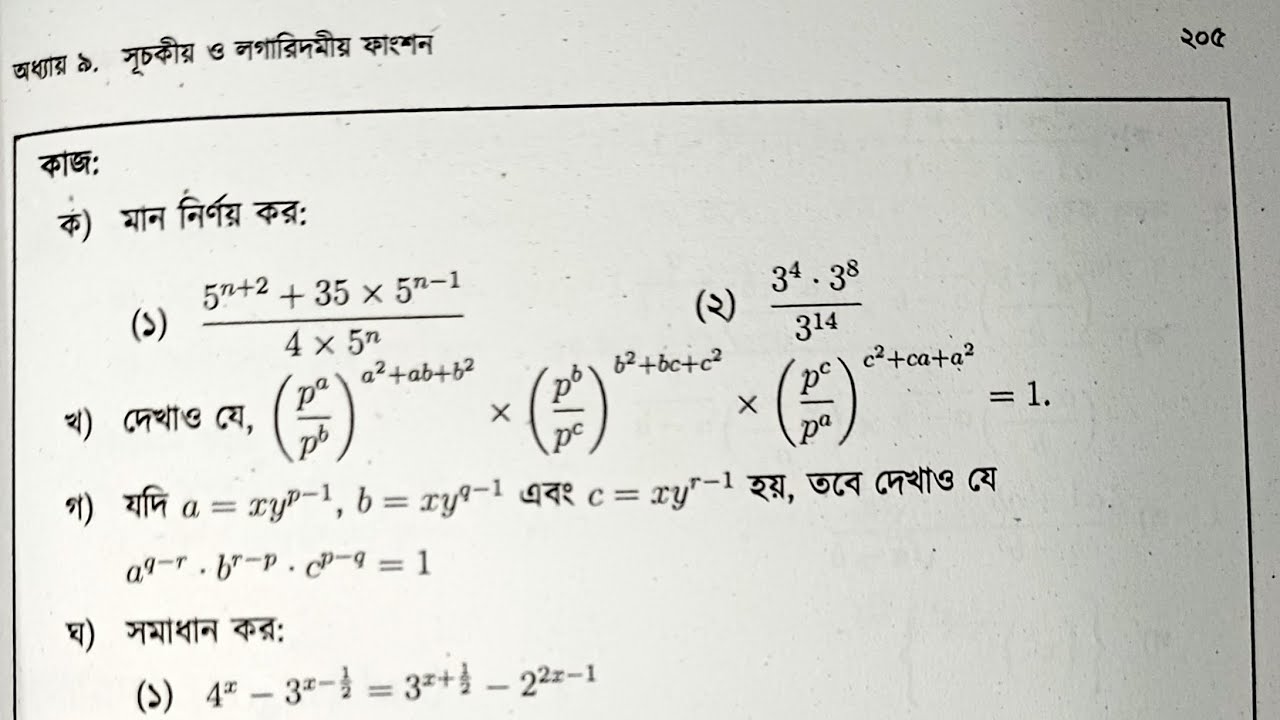 অধ্যায় ৯. সূচকীয় ও লগারিদমীয় ফাংশন ২০৫
কাজ:
ক) মান নির্ণয় কর:
(১) \frac{5^{n+2} + 35 × 5^{n-1}}{4 × 5^n} (২) \frac{3^4 · 3^8}{3^{14}}
খ) দেখাও যে, \left(\frac{p^a}{p^b}\right)^{a^2+ab+b^2} × \left(\frac{p^b}{p^c}\right)^{b^2+bc+c^2} × \left(\frac{p^c}{p^a}\right)^{c^2+ca+a^2} = 1.
গ) যদি a = xy^{p-1}, b = xy^{q-1} এবং c = xy^{r-1} হয়, তবে দেখাও যে
a^{q-r} · b^{r-p} · c^{p-q} = 1
ঘ) সমাধান কর:
(১) 4^x - 3^{x-\frac{1}{2}} = 3^{x+\frac{1}{2}} - 2^{2x-1}